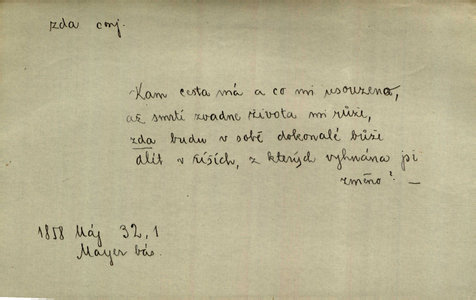 zda conj.
Kam cesta má a co mi usouzeno,
až smrtí zvadne života mi růže,
zda budu v sobě dokonalé bůže
dlít v říších, z kterých vyhnána je
změno? —
1858 Máj 32,1
Mayer bás.